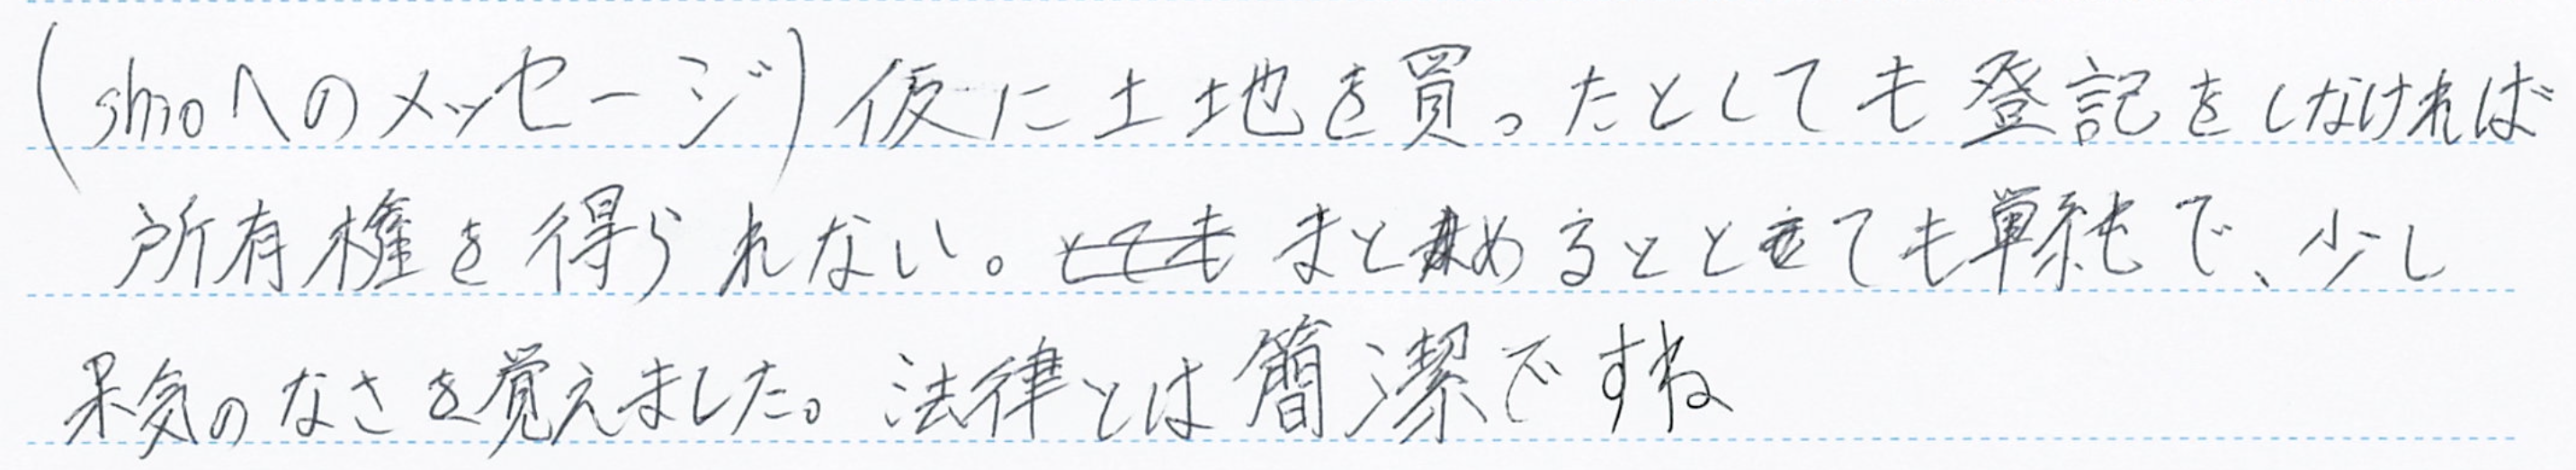 (shioへのメッセージ)仮に土地を買ったとしても登記をしなければ
所有権を得られない。まとめるととても単純で、少し
呆気のなさを覚えました。法律とは簡潔ですね